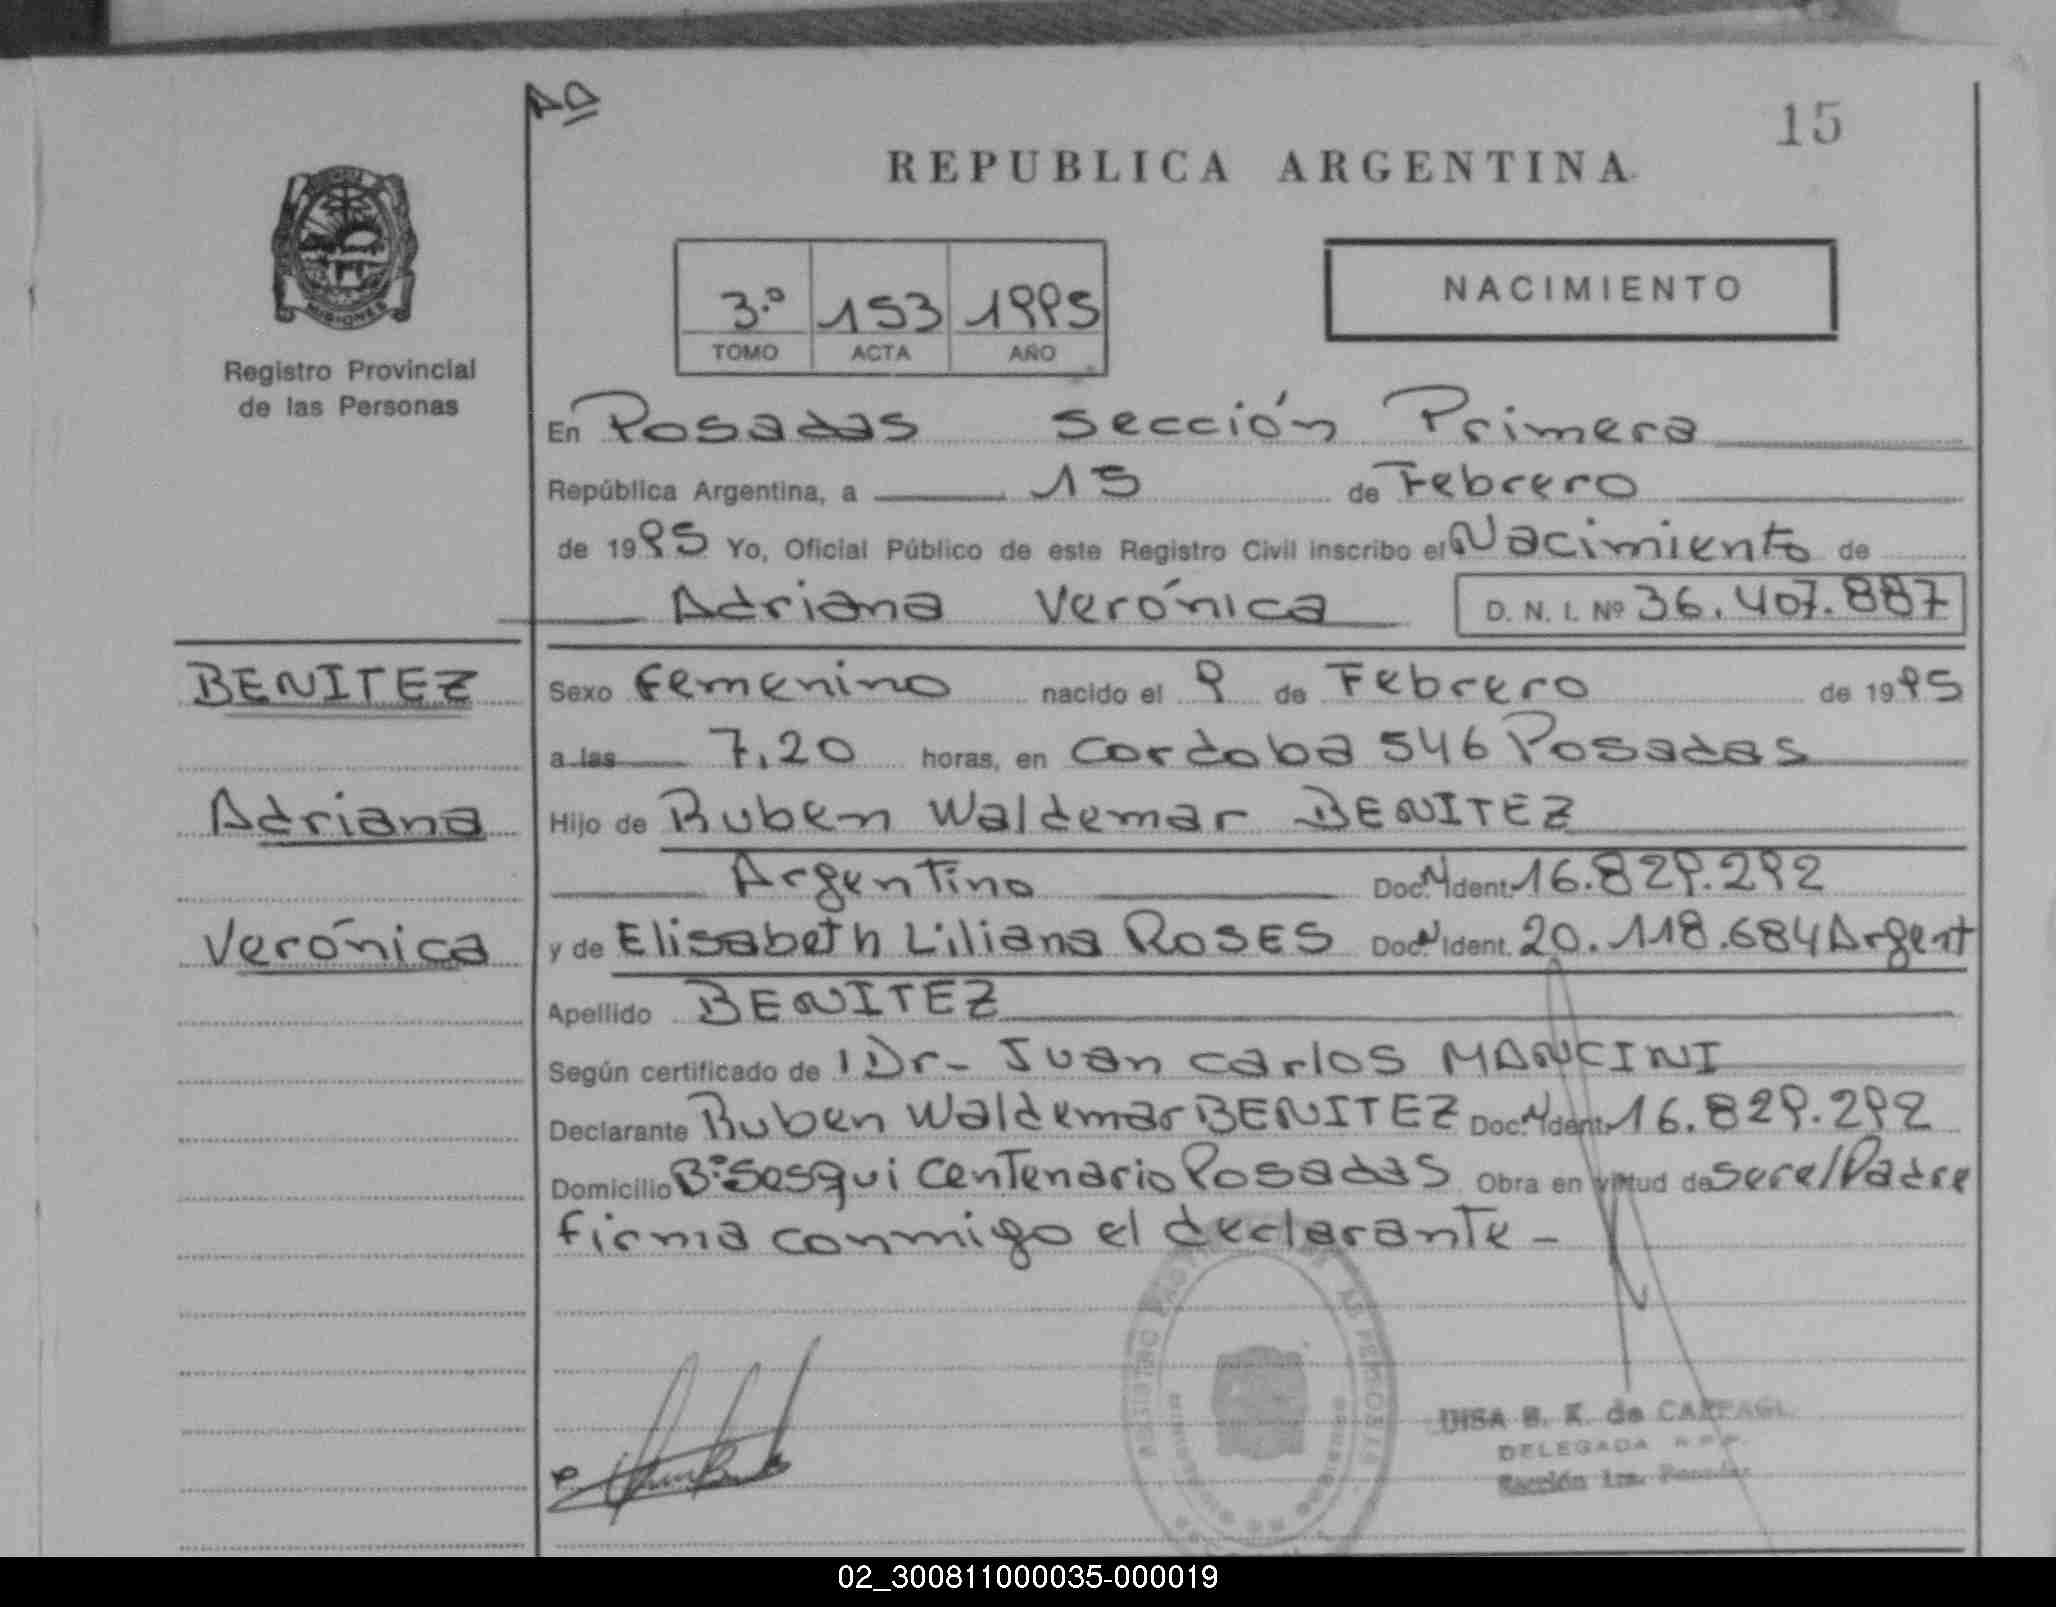 AD
15
REPUBLICA ARGENTINA
MISIONES
3.º 153 1995
TOMO ACTA AÑO
NACIMIENTO
Registro Provincial
de las Personas
En Posadas sección Primera
República Argentina, a 15 de Febrero
de 1995 Yo, Oficial Público de este Registro Civil inscribo el Nacimiento de
Adriana Verónica D. N. I. Nº 36.407.887
BENITEZ
Adriana
Verónica
Sexo Femenino nacido el 9 de Febrero de 1995
a las 7,20 horas, en Cordoba 546 Posadas
Hijo de Ruben Waldemar BENITEZ
Argentino Doc. N Ident. 16.829.292
y de Elisabeth Liliana ROSES Doc. N Ident. 20.118.684 Argent
Apellido BENITEZ
Según certificado de Dr- Juan Carlos MANCINI
Declarante Ruben Waldemar BENITEZ Doc. N Ident. 16.829.292
Domicilio Bº Sesqui Centenario Posadas Obra en virtud de ser el Padre
firma conmigo el declarante -
REGISTRO AS PERSONAS
B. K. de
DELEGADA R.P.P.
Sección 1ra. Posadas
02_300811000035-000019